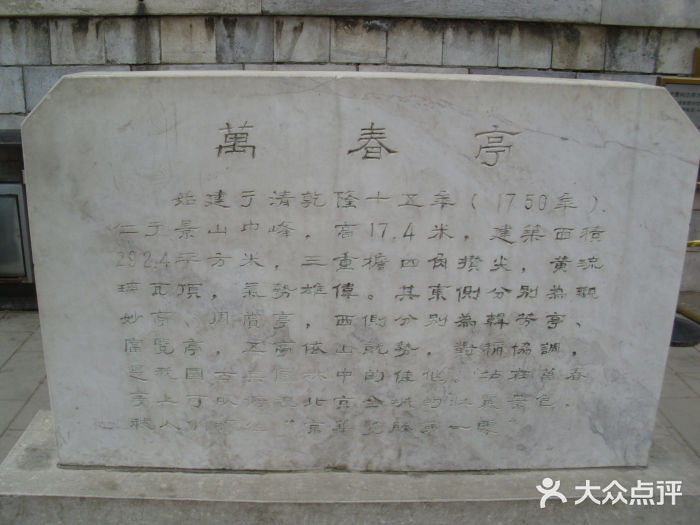 萬春亭
始建于清乾隆十五年(1750年).
位于景山中峰.高17.4米,建築面積
292.4平方米,三重檐四角攢尖,黄琉
璃瓦頂,氣勢雄偉。其東側分别為觀
妙亭、周賞亭,西側分别為輯芳亭、
富覽亭,五亭依山就勢,對稱協調,
是我國古典園林中的佳作。站在萬春
亭上可以
大众点评